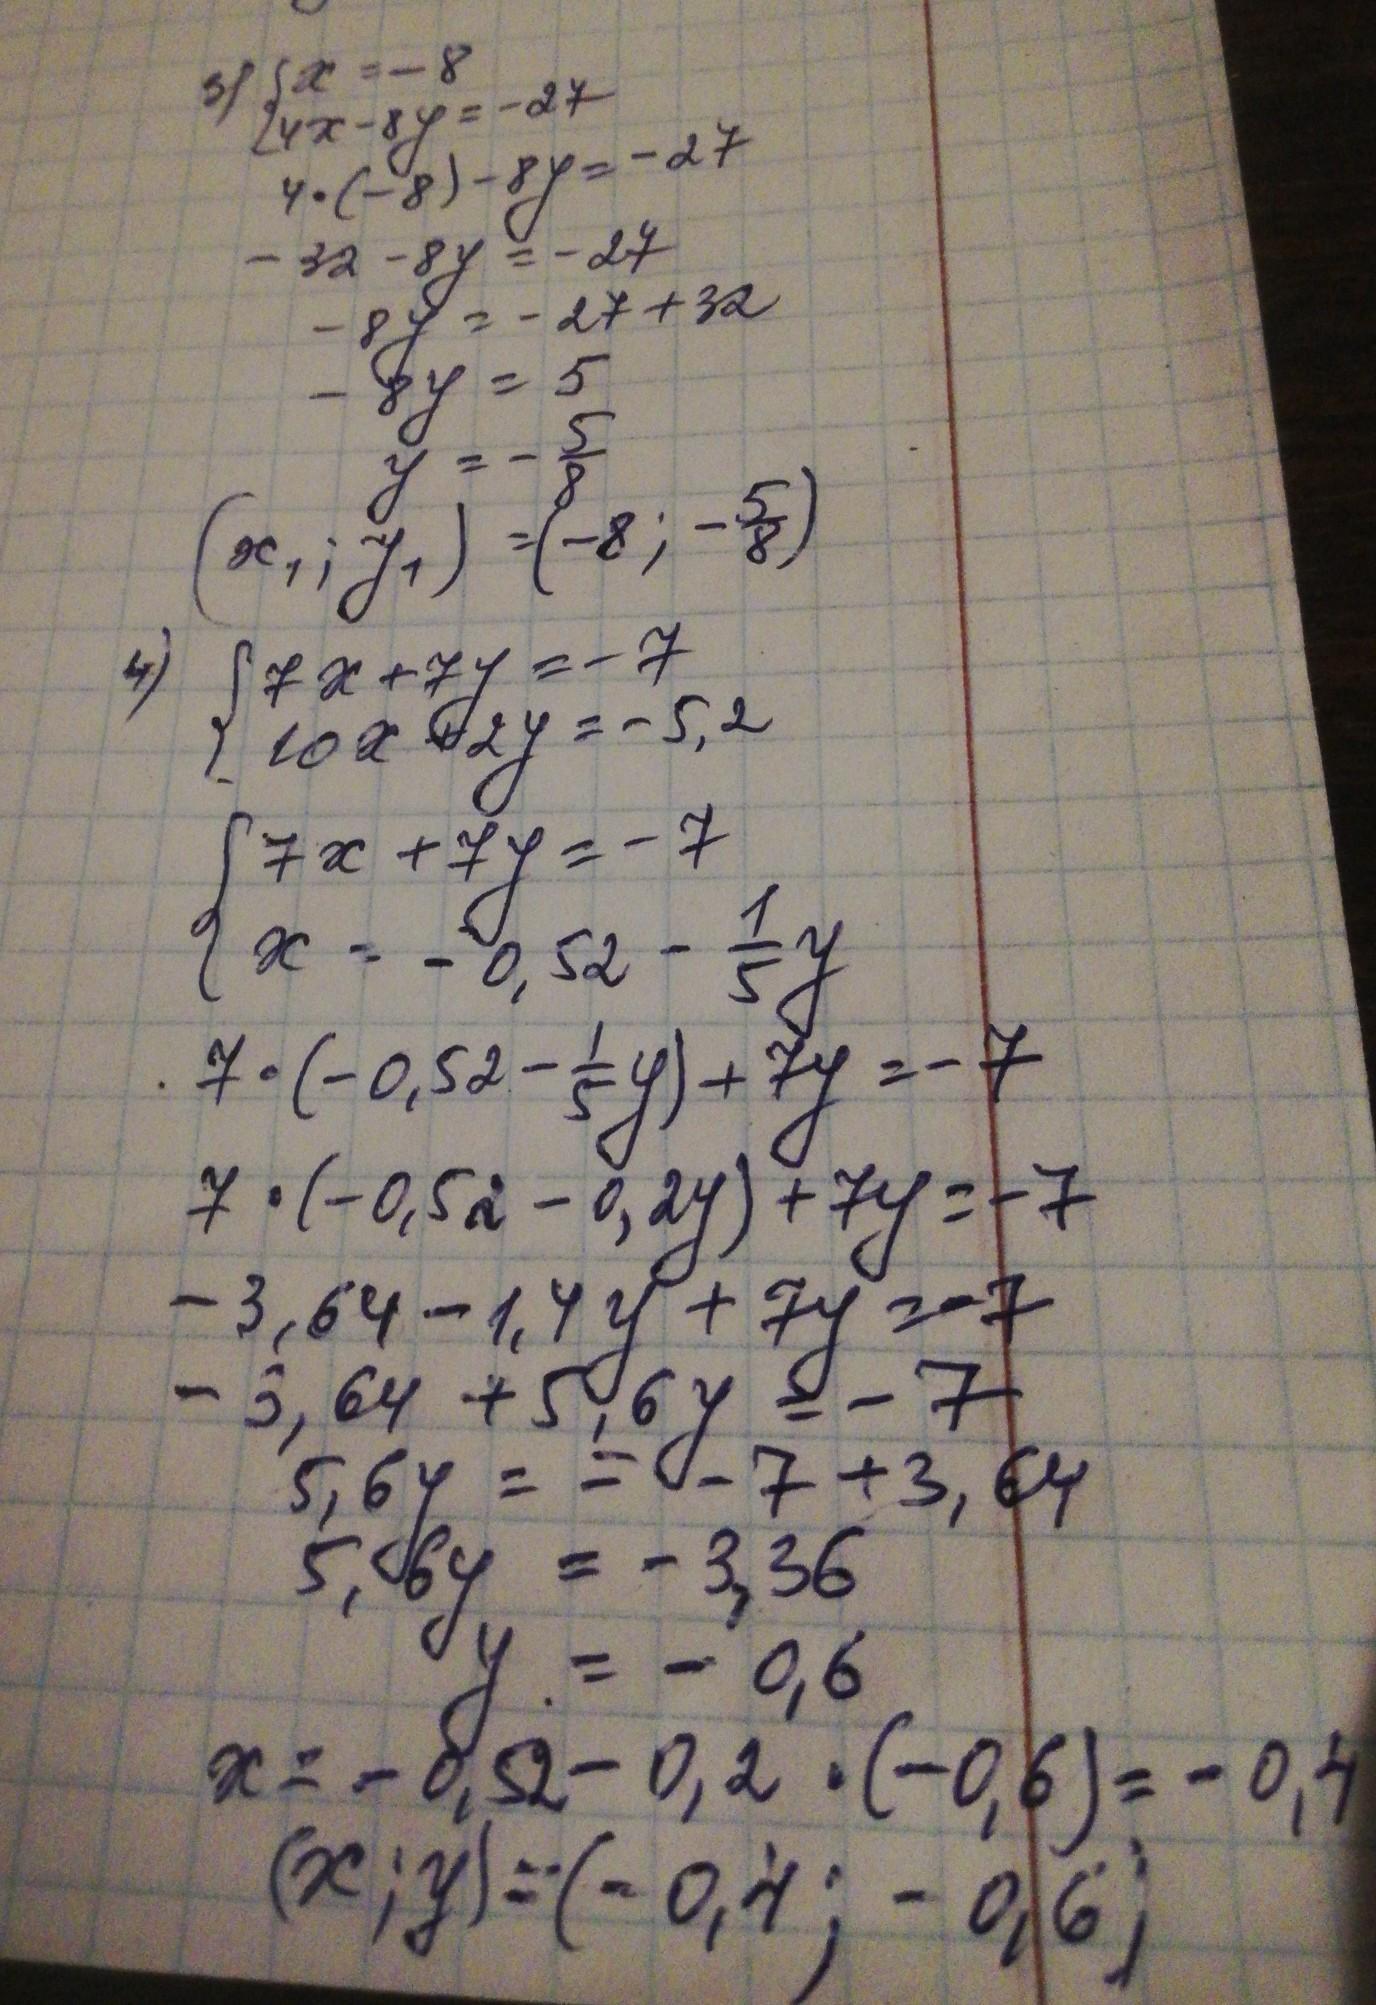 3) { x = - 8
4x - 8y = - 27
4·(-8) - 8y = - 27
- 32 - 8y = - 27
- 8y = - 27 + 32
- 8y = 5
y = - 5/8
(x₁; y₁) = (-8; - 5/8)
4) { 7x + 7y = - 7
10x + 2y = - 5,2
{ 7x + 7y = - 7
x = - 0,52 - 1/5 y
7·(-0,52 - 1/5 y) + 7y = - 7
7·(-0,52 - 0,2y) + 7y = - 7
- 3,64 - 1,4y + 7y = - 7
- 3,64 + 5,6y = - 7
5,6y = = - 7 + 3,64
5,6y = - 3,36
y = - 0,6
x = - 0,52 - 0,2 · (-0,6) = - 0,4
(x; y) = (- 0,4; - 0,6)